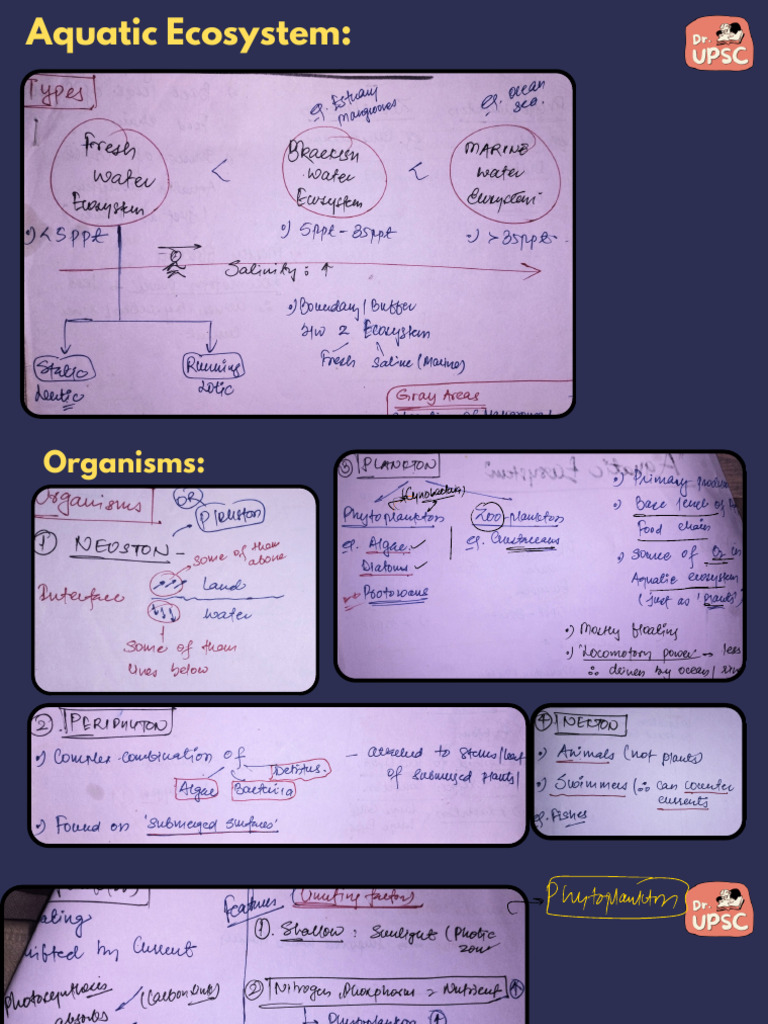 Aquatic Ecosystem:
Dr.
UPSC
Types
Fresh
water
Ecosystem
<
eg. Estuary
mangroves
Brackish
water
Ecosystem
<
eg. ocean
sea.
MARINE
water
Ecosystem
•) <5ppt
•) 5ppt - 35ppt
•) >35ppt
Salinity: ↑
•) Boundary / Buffer
b/w 2 Ecosystem
Fresh Saline (Marine)
Static
Lentic
Running
Lotic
Gray Areas
Organisms:
Organisms
OR
Pleuston
① NEUSTON -
some of them
above
Interface
Land
water
Some of them
lives below
③ PLANKTON
(Cynobacteria)
Phytoplankton
eg. Algae
Diatoms
Protozoans
Zoo-plankton
eg. Crustaceans
•) Primary
•) Base level of
Food chain
•) source of O2 in
Aquatic ecosystem
(just as 'plants')
•) Mostly floating
•) 'Locomotory power' → less
∴ driven by ocean/
②. PERIPHYTON
•) Complex combination of
Algae Bacteria Detritus.
- attached to stems/leaf
of submerged plants/
•) Found on 'submerged surfaces'
④ NEKTON
•) Animals (not plants)
•) Swimmers (∴ can counter
currents
eg. Fishes
by Current
photosynthesis
absorbs
(Carbon sink)
Features (Limiting factors)
①. Shallow : Sunlight (Photic
zone
② Nitrogen, Phosphorus = Nutrient ↑
↳ Phytoplankton ↑
Phytoplankton
Dr.
UPSC